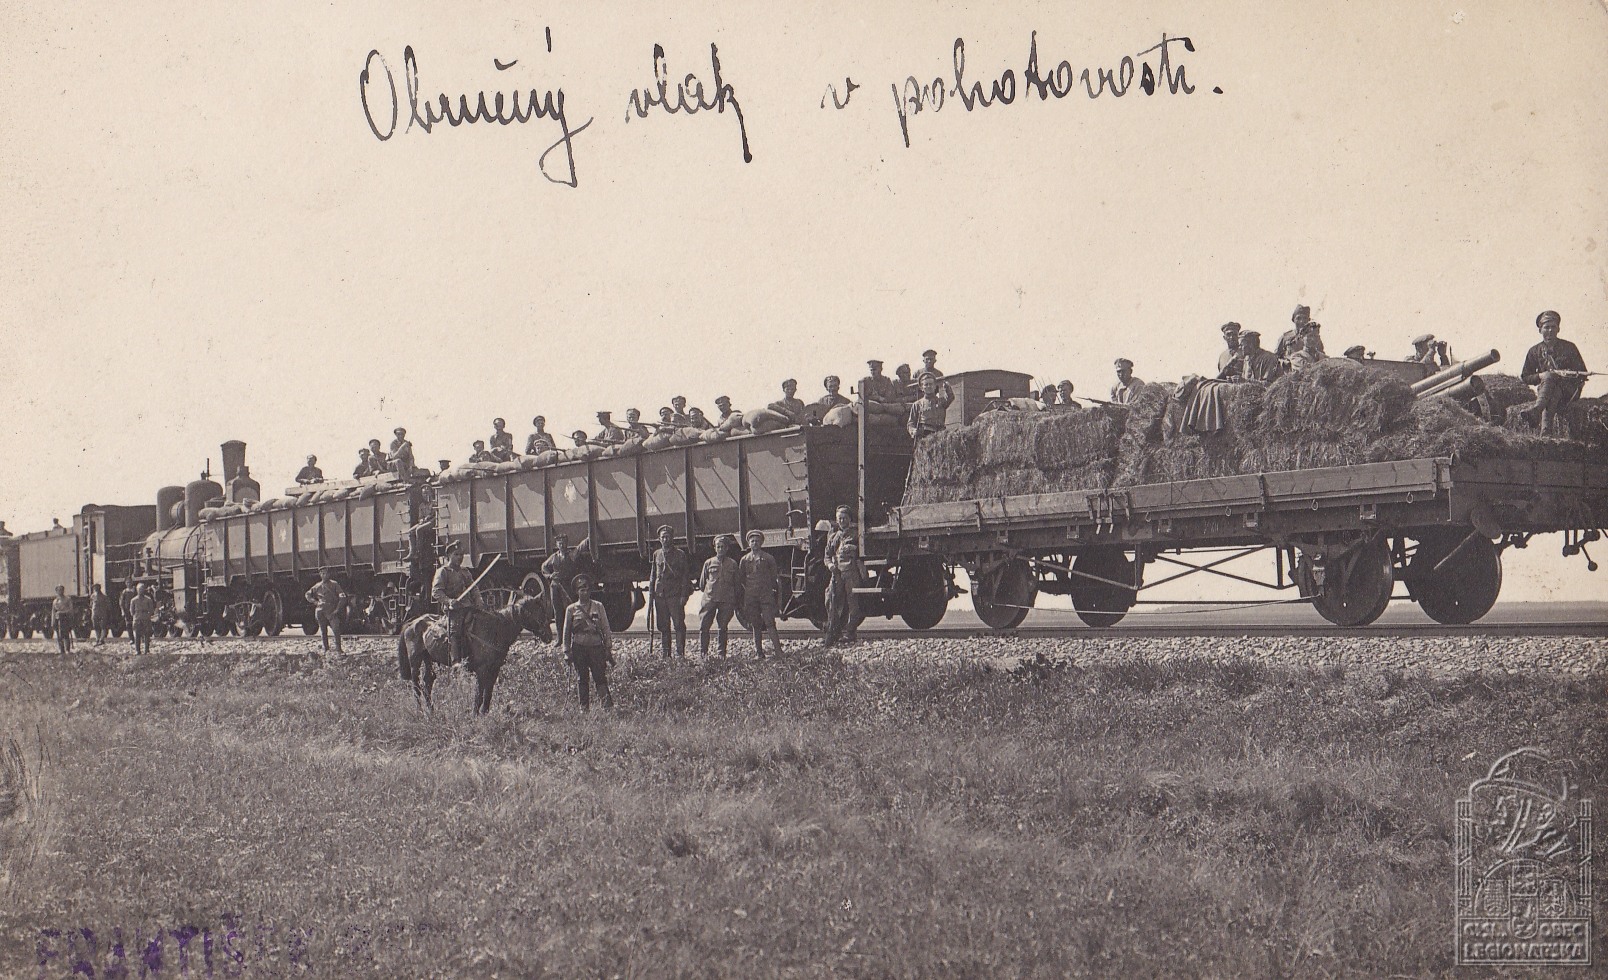 Obrněný vlak v pohotovosti.
FRANTIŠEK
ČSL. OBEC
LEGIONÁŘSKÁ